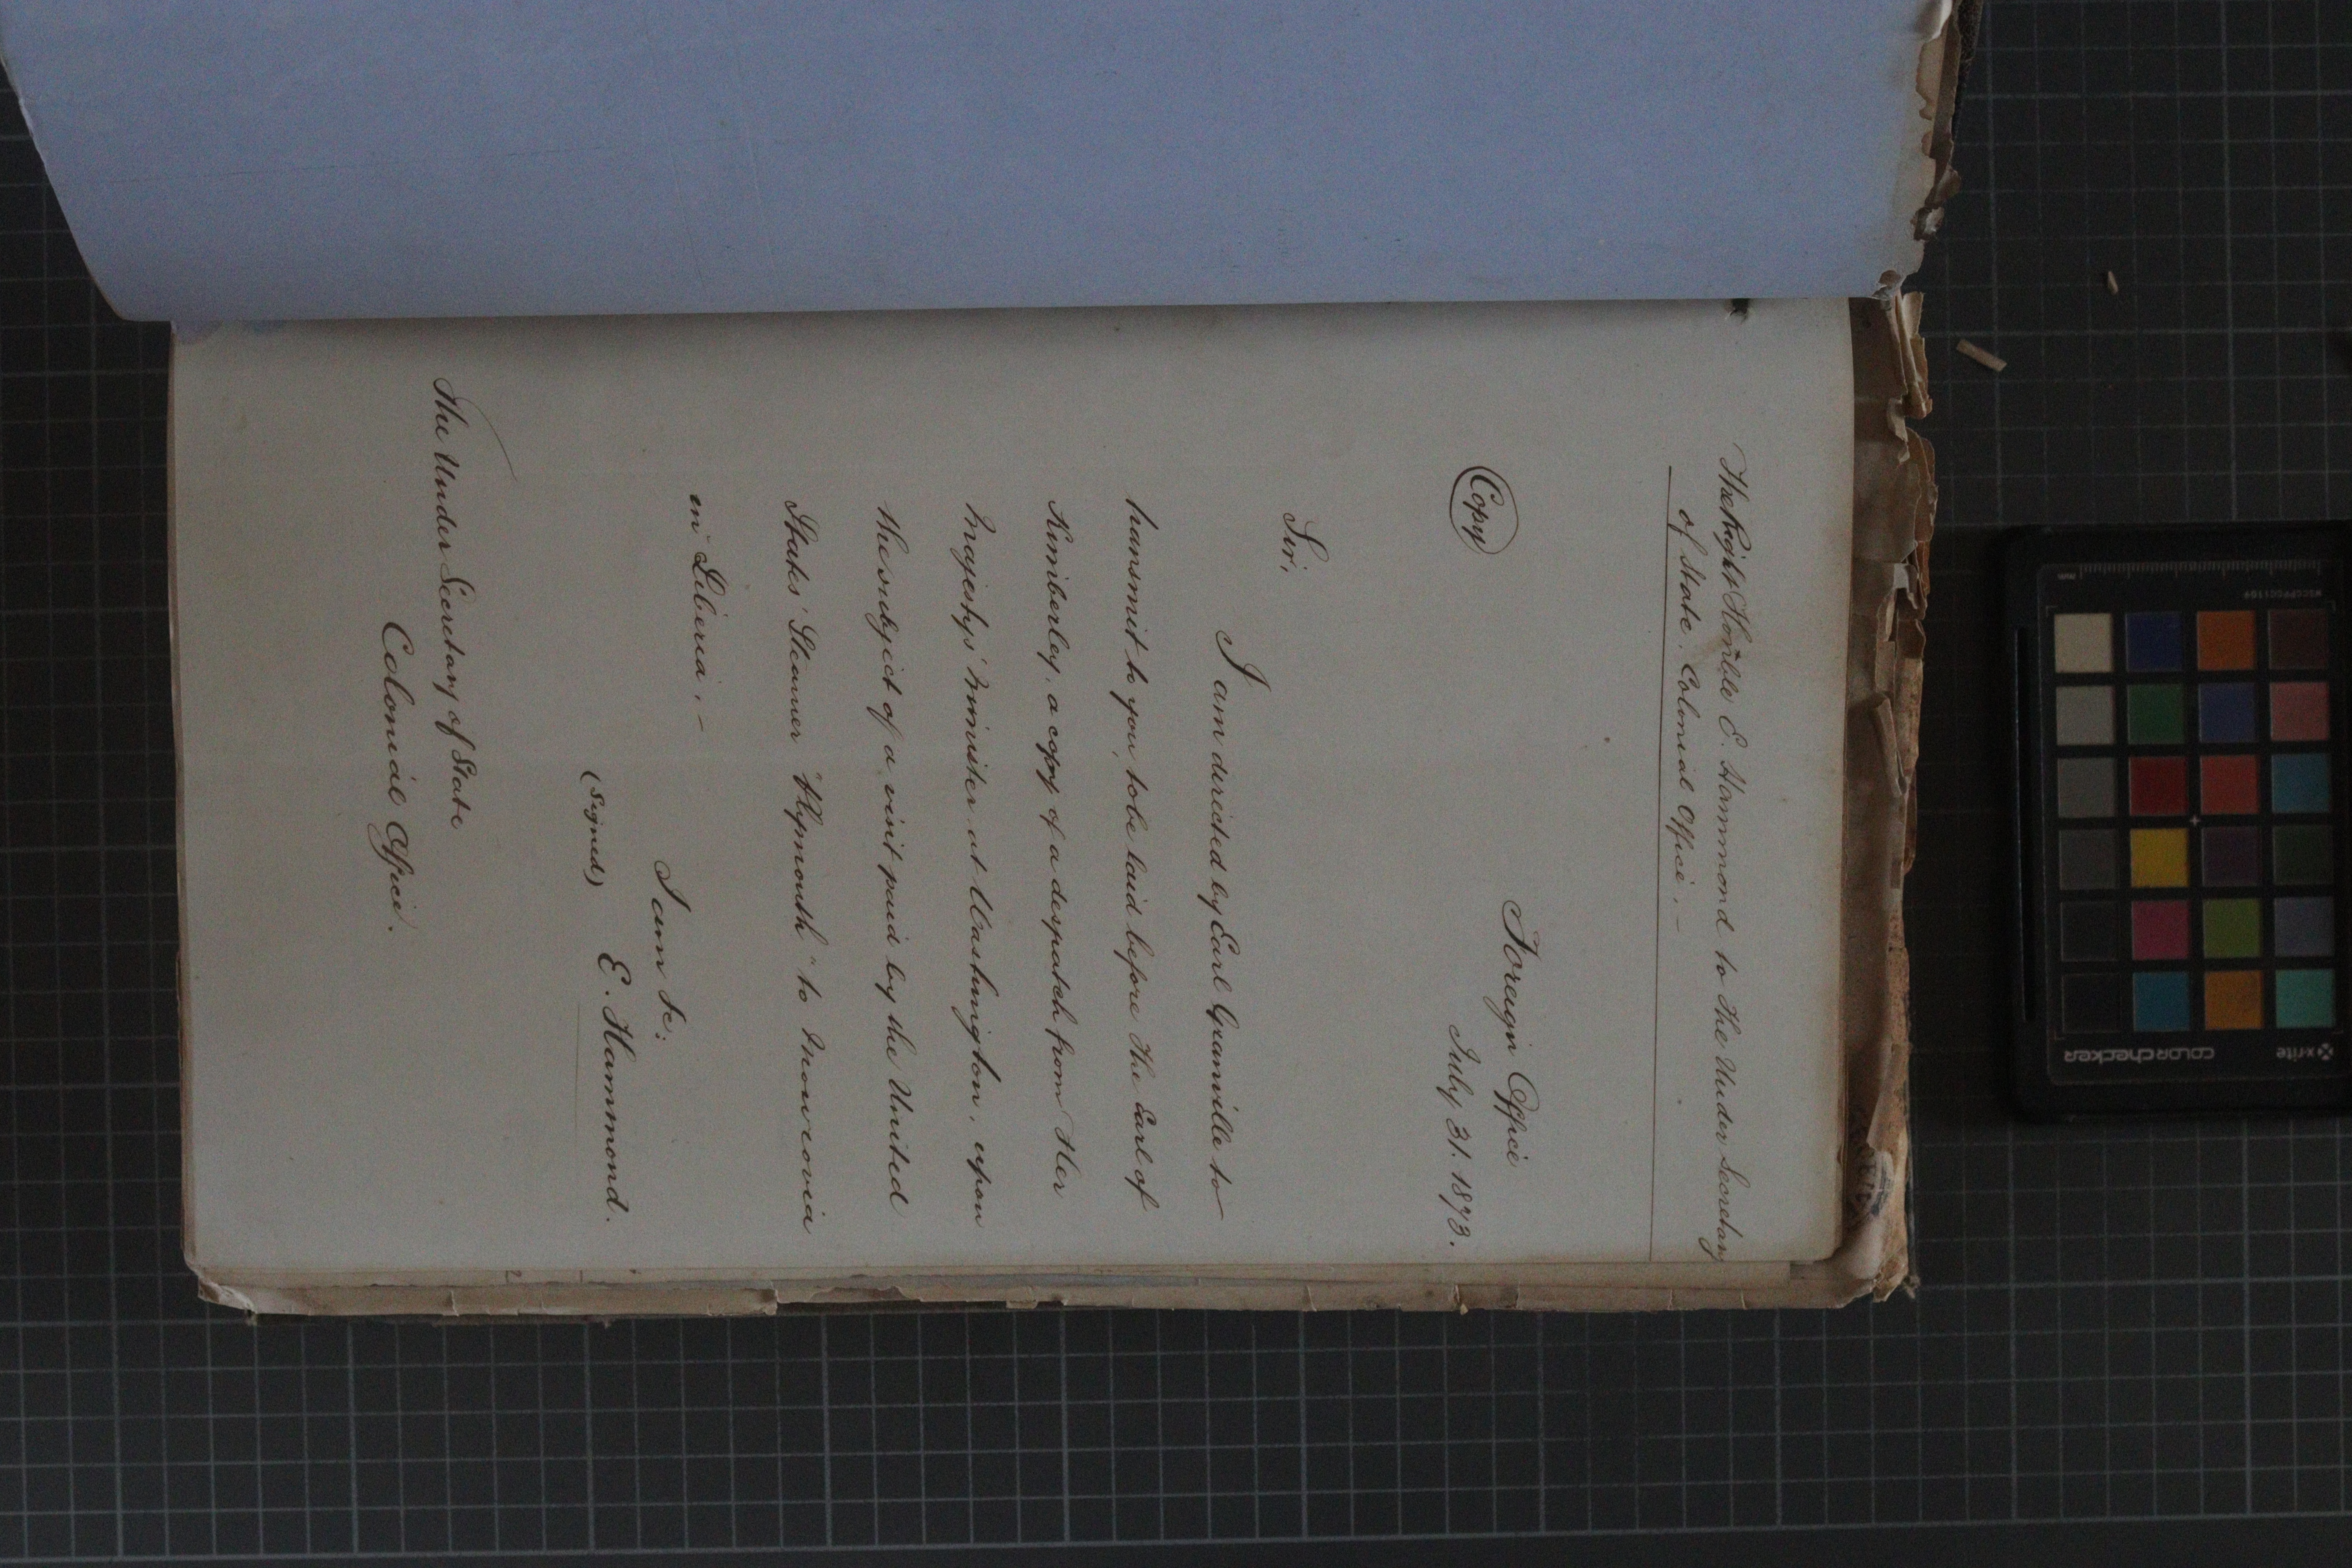 The Right Honble E. Hammond to the Under Secretary
of State. Colonial Office. -
Foreign Office
July 31. 1873.
(Copy)
Sir,
I am directed by Earl Granville to
transmit to you, to be laid before the Earl of
Kimberley, a copy of a despatch from Her
Majesty's Minister at Washington, upon
the subject of a visit paid by the United
States' Steamer "Plymouth" to Monrovia
in Liberia. -
I am &c:
(Signed) E. Hammond.
The Under Secretary of State
Colonial Office.
x-rite
colorchecker
MSCCPPCC1109